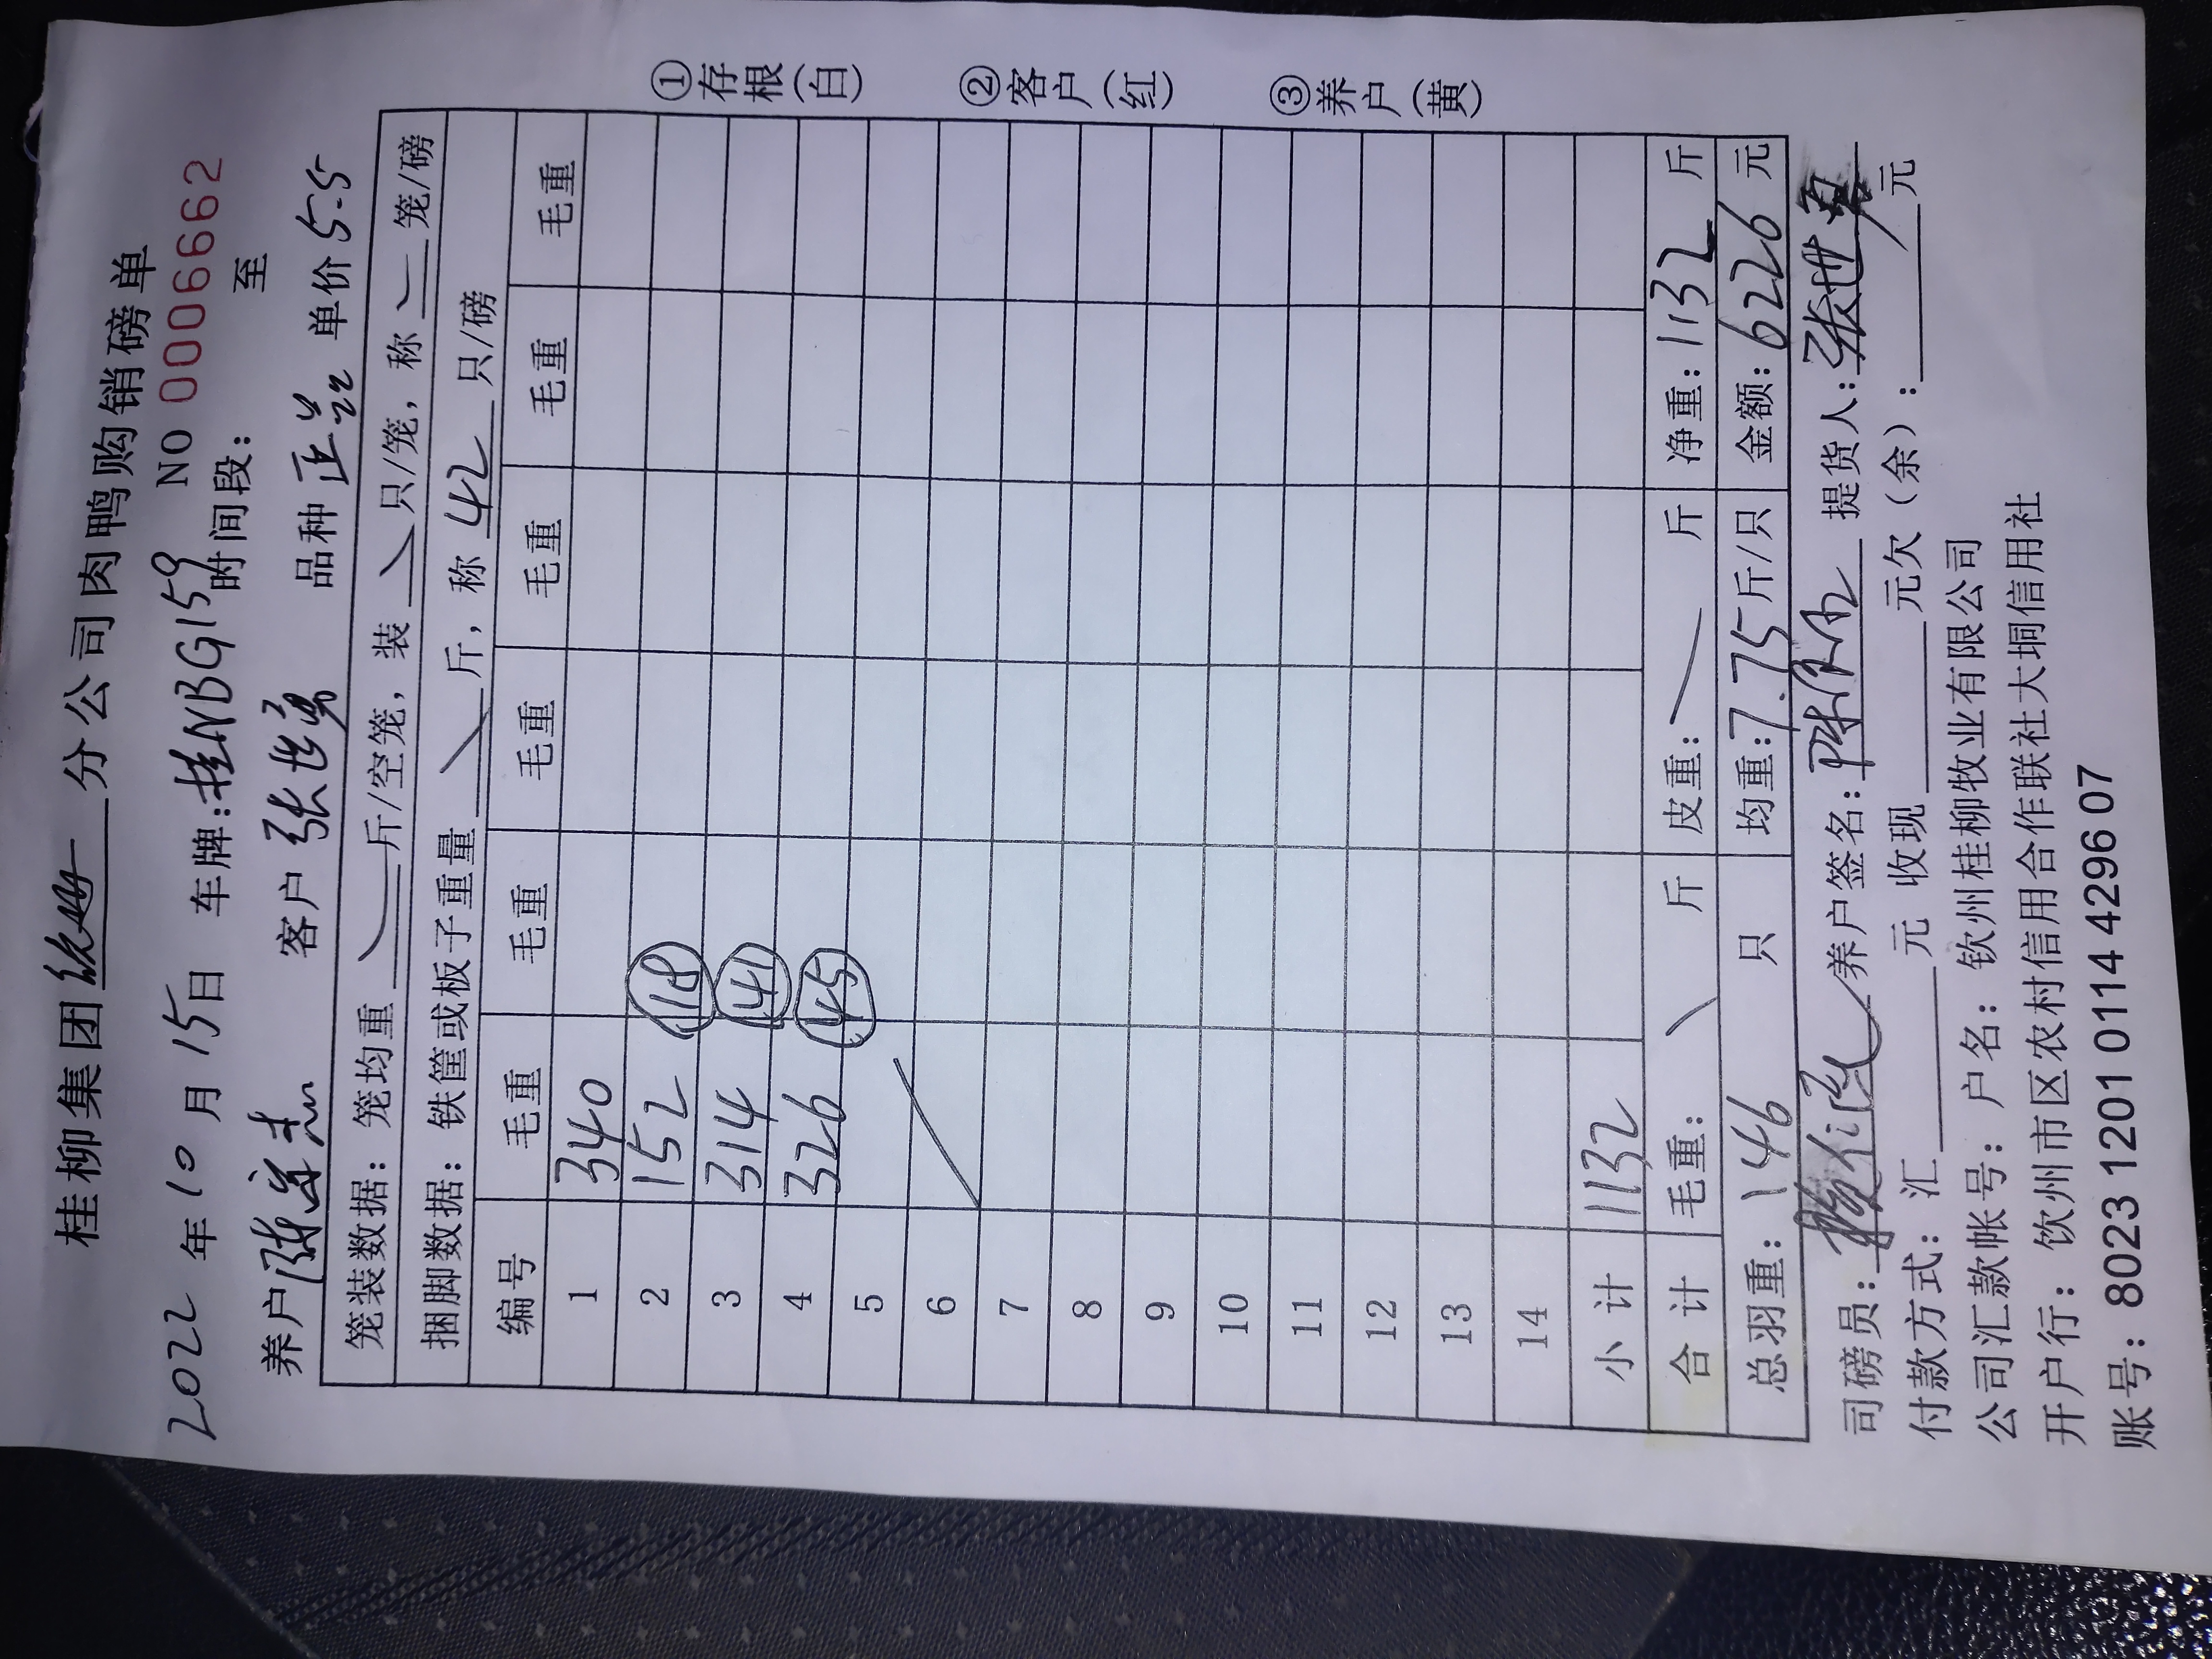 桂柳集团 分公司肉鸭购销磅单
2022 年 10 月 15 日 车牌：桂NBG159 NO 0006662
时间段： 至
养户 陈 志 客户 张世勇 品种 正 单价 5.5
笼装数据：笼均重 斤/空笼，装 只/笼，称 笼/磅
捆脚数据：铁筐或板子重量 斤，称 42 只/磅
编号 毛重 毛重 毛重 毛重 毛重 毛重
1 340
2 152 (18)
3 314 (41)
4 326 (45)
5
6
7
8
9
10
11
12
13
14
小计 1132
合计 毛重： 斤 皮重： 斤 净重：1132 斤
总羽重：146 只 均重：7.75 斤/只 金额：6226 元
司磅员： 养户签名： 提货人：张世勇
付款方式：汇 元 收现 元欠（余）： 元
公司汇款帐号：户名：钦州桂柳牧业有限公司
开户行：钦州市区农村信用合作联社大垌信用社
账号：8023 1201 0114 4296 07
①存根(白)
②客户(红)
③养户(黄)